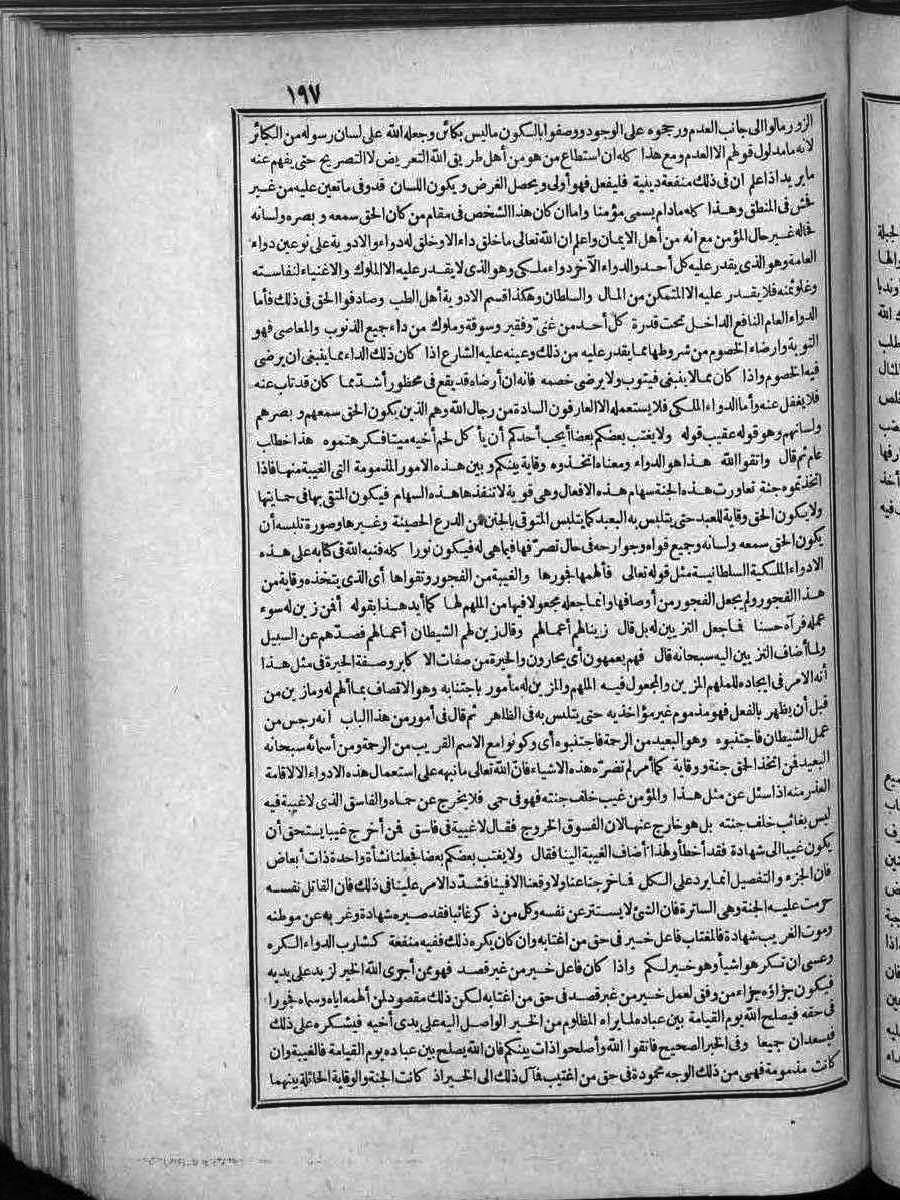 ١٩٧
الزور مالوا الى جانب العدم ورجحوه على الوجود ووصفوا بالسكون ما ليس بكائن وجعله الله على لسان رسوله من الكبائر
لانه ما مدلول قولهم الا العدم ومع هذا كله ان استطاع من هو من أهل طريق الله التعريض لا التصريح حتى يفهم عنه
ما يريد اذا علم ان فى ذلك منفعة دينية فليفعل فهو أولى ويحصل الغرض ويكون اللسان قد وفى ما تعين عليه من غير
فحش فى المنطق وهذا كله مادام يسمى مؤمنا واما ان كان هذا الشخص فى مقام من كان الحق سمعه وبصره ولسانه
فحاله غير حال المؤمن مع انه من أهل الايمان واعلم ان الله تعالى ما خلق داء الا وخلق له دواء والادوية على نوعين دواء
العامة وهو الذى يقدر عليه كل أحد والدواء الآخر دواء ملكى وهو الذى لا يقدر عليه الا الملوك والاغنياء لنفاسته
وغلو ثمنه فلا يقدر عليه الا المتمكن من المال والسلطان وهكذا قسم الادوية أهل الطب وصادفوا الحق فى ذلك فأما
الدواء العام النافع الداخل تحت قدرة كل أحد من غنىّ وفقير وسوقة وملوك من داء جميع الذنوب والمعاصى فهو
التوبة وارضاء الخصوم من شروطها مما يقدر عليه من ذلك وعينه عليه الشارع اذا كان ذلك الداء مما ينبغى ان يرضى
فيه الخصوم واذا كان مما لا ينبغى فيتوب ولا يرضى خصمه فانه ان أرضاه قد يقع فى محظور أشدّ مما كان قد تاب عنه
فلا يغفل عنه وأما الدواء الملكى فلا يستعمله الا العارفون السادة من رجال الله وهم الذين يكون الحق سمعهم وبصرهم
ولسانهم وهو قوله عقيب قوله ولا يغتب بعضكم بعضا أيحب أحدكم أن يأكل لحم أخيه ميتا فكرهتموه هذا خطاب
عام ثم قال واتقوا الله هذا هو الدواء ومعناه اتخذوه وقاية بينكم وبين هذه الامور المذمومة التى الغيبة منها فاذا
اتخذتموه جنة تعاورت هذه الجنة سهام هذه الافعال وهى قوية لا تنفذها هذه السهام فيكون المتقى بها فى حمايتها
ولا يكون الحق وقاية للعبد حتى يتلبس به العبد كما يتلبس المتوقى بالجنن من الدرع الحصينة وغيرها وصورة تلبسه أن
يكون الحق سمعه ولسانه وجميع قواه وجوارحه فى حال تصرّفها فيما هى له فيكون نورا كله فنبه الله فى كتابه على هذه
الادواء الملكية السلطانية مثل قوله تعالى فألهمها فجورها والغيبة من الفجور وتقواها أى الذى يتخذه وقاية من
هذا الفجور ولم يجعل الفجور من أوصافها وانما جعله مجعولا فيها من الملهم لها كما أيد هذا بقوله أفمن زين له سوء
عمله فرآه حسنا فما جعل التزيين له بل قال زينا لهم أعمالهم وقال زين لهم الشيطان أعمالهم فصدّهم عن السبيل
ولما أضاف التزيين اليه سبحانه قال فهم يعمهون أى يحارون والحيرة من صفات الاكابر وصفة الحيرة فى مثل هذا
أنه الامر فى ايجاده للملهم المزين والمجعول فيه الملهم والمزين له مأمور باجتنابه وهو الاتصاف بما ألهم له وما زين من
قبل أن يظهر بالفعل فهو مذموم غير مؤاخذ به حتى يتلبس به فى الظاهر ثم قال فى أمور من هذا الباب انه رجس من
عمل الشيطان فاجتنبوه وهو البعيد من الرحمة فاجتنبوه أى وكونوا مع الاسم القريب من الرحمة ومن أسمائه سبحانه
البعيد فمن اتخذ الحق جنة ووقاية كما أمر لم تضرّه هذه الاشياء فانّ الله تعالى ما نبهه على استعمال هذه الادواء الا لاقامة
العذر منه اذا سئل عن مثل هذا والمؤمن غيب خلف جنته فهو فى حمى فلا يخرج عن حماه والفاسق الذى لا غيبة فيه
ليس بغائب خلف جنته بل هو خارج عنها لان الفسوق الخروج فقال لا غيبة فى فاسق فمن أخرج غيبا يستحق أن
يكون غيبا الى شهادة فقد أخطأ ولهذا أضاف الغيبة الينا فقال ولا يغتب بعضكم بعضا فجعلنا نشأة واحدة ذات أبعاض
فان الجزء والتفصيل انما يرد على الكل فما خرجنا عنا ولا وقعنا الا فينا فشدّد الامر علينا فى ذلك فان القاتل نفسه
حرمت عليه الجنة وهى الساترة فان الشئ لا يستتر عن نفسه وكل من ذكر غائبا فقد صيره شهادة وغربه عن موطنه
وموت الغريب شهادة فالمغتاب فاعل خير فى حق من اغتابه وان كان يكره ذلك ففيه منفعة كشارب الدواء الكره
وعسى ان تكرهوا شيأ وهو خير لكم واذا كان فاعل خير من غير قصد فهو ممن أجرى الله الخير لزيد على يديه
فيكون جزاؤه جزاء من وفق لعمل خير من غير قصد فى حق من اغتابه لكن ذلك مقصود لمن ألهمه اياه وسماه فجورا
فى حقه فيصلح الله يوم القيامة بين عباده لما يراه المظلوم من الخير الواصل اليه على يدى أخيه فيشكره على ذلك
فيسعدان جميعا وفى الخبر الصحيح فاتقوا الله وأصلحوا ذات بينكم فان الله يصلح بين عباده يوم القيامة فالغيبة وان
كانت مذمومة فهى من ذلك الوجه محمودة فى حق من اغتيب فآل ذلك الى الخير اذ كانت الجنة والوقاية الحائلة بينهما